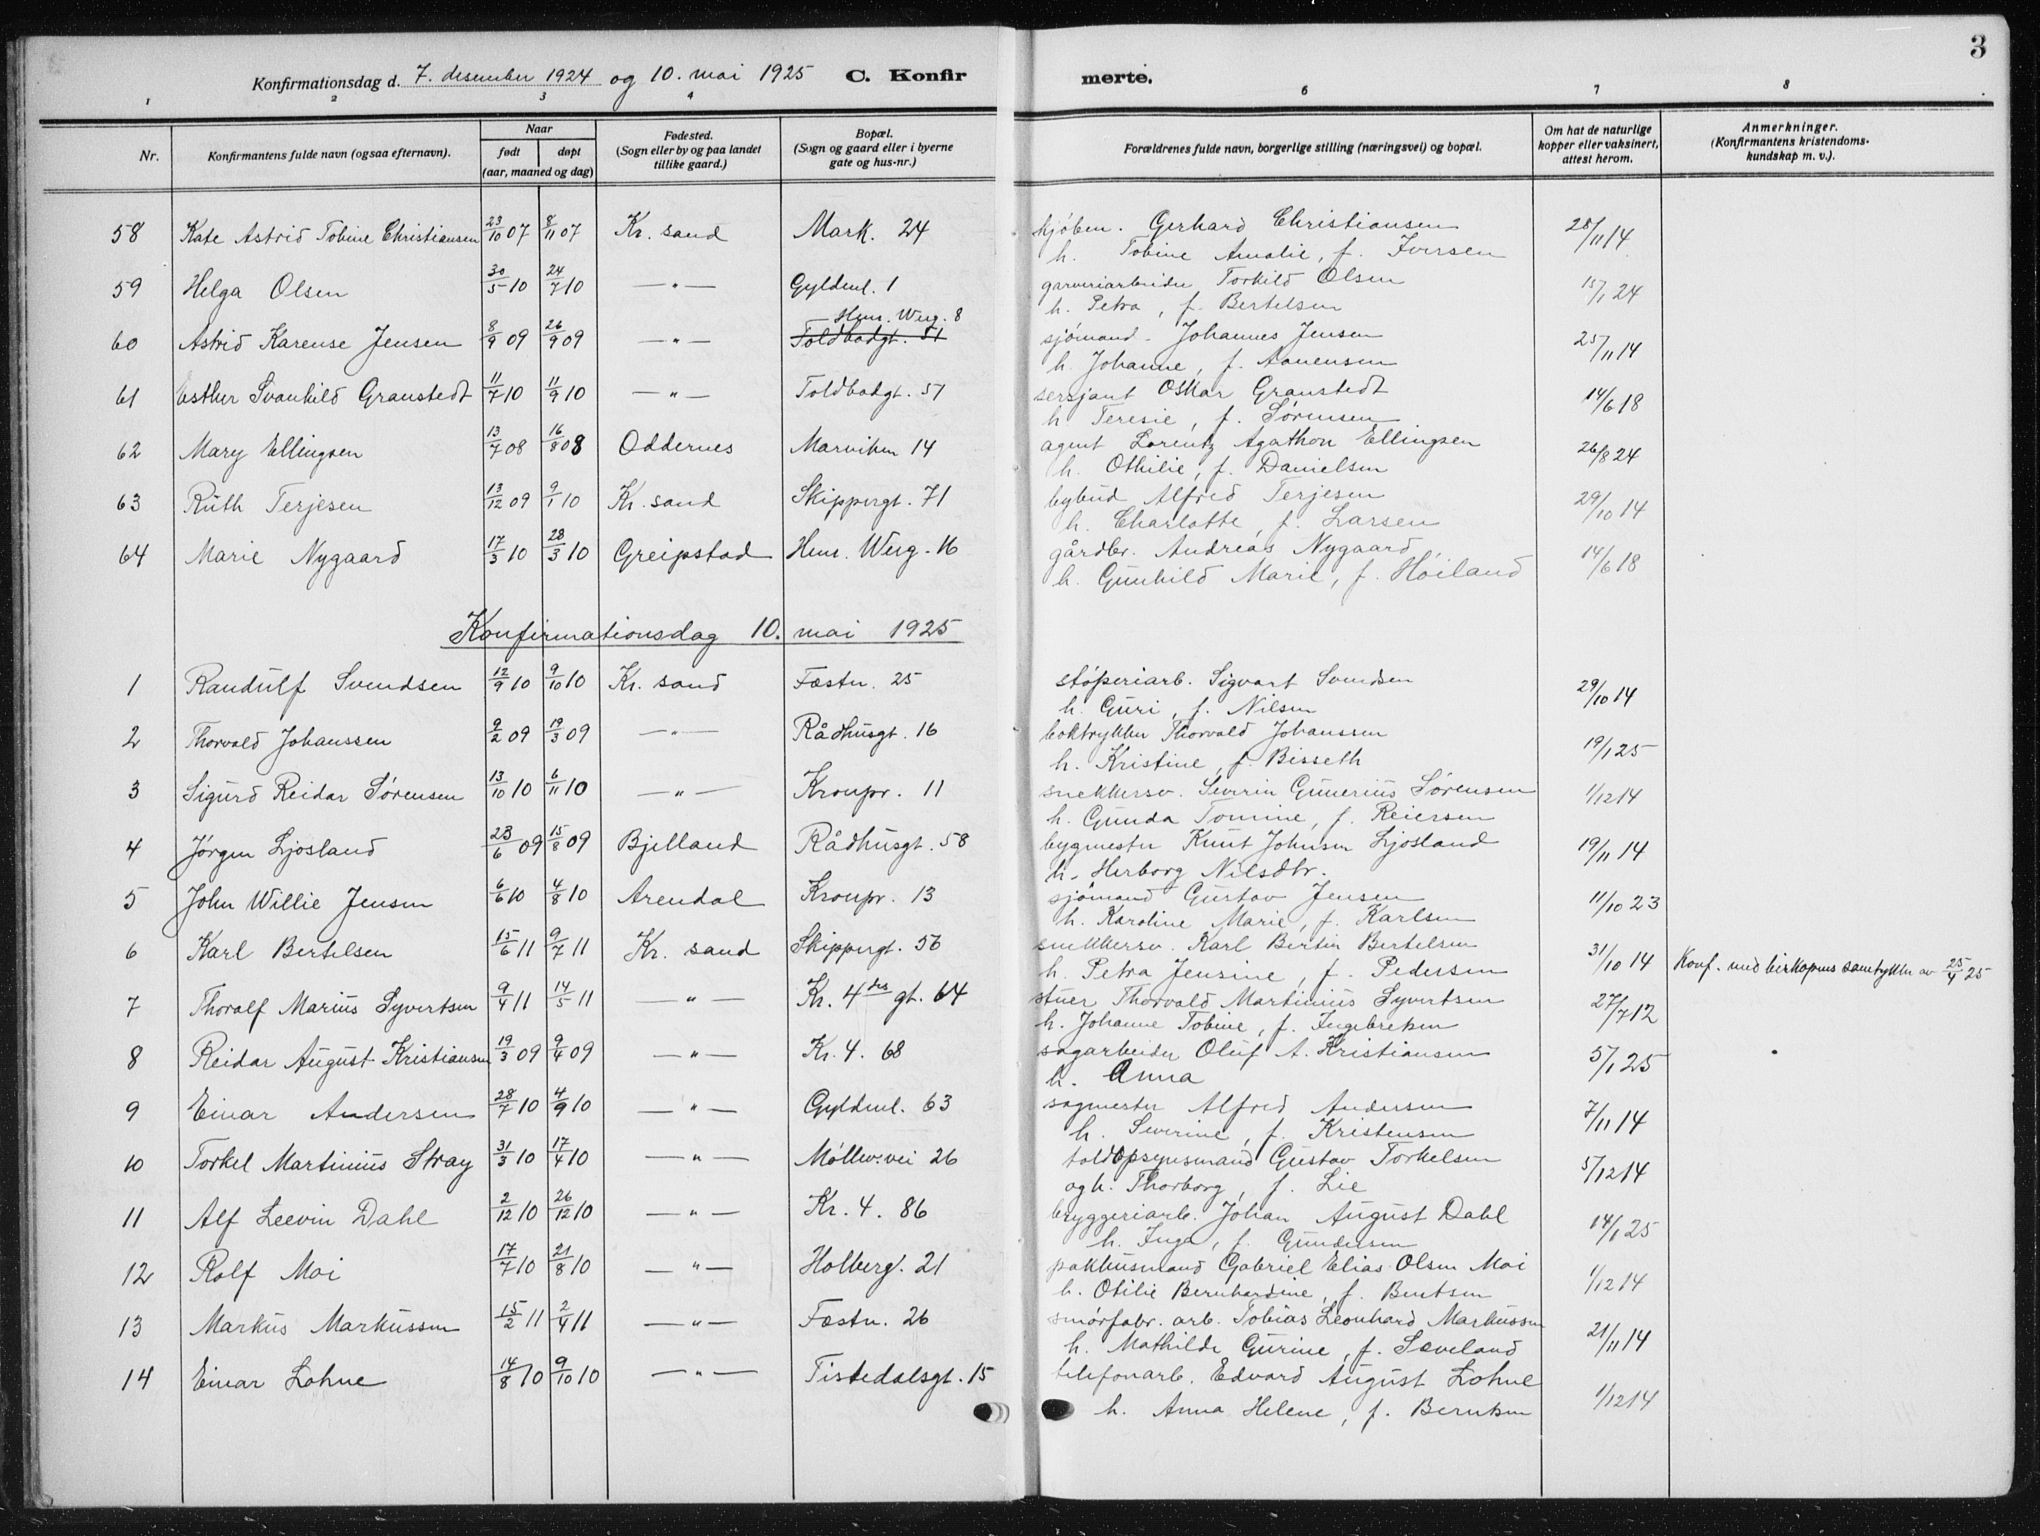 3
Konfirmationsdag d. 7. desember 1924 og 10. mai 1925 C. Konfir merte.
1 2 3 4 6 7 8
Nr. Konfirmantens fulde navn (ogsaa efternavn). Naar født døpt (aar, maaned og dag) Fødested. (Sogn eller by og paa landet tillike gaard.) Bopæl. (Sogn og gaard eller i byerne gate og hus-nr.) Forældrenes fulde navn, borgerlige stilling (næringsvei) og bopæl. Om hat de naturlige kopper eller vaksinert, attest herom. Anmerkninger. (Konfirmantens kristendoms- kundskap m. v.).
58 Kate Astrid Tobine Christiansen 23/10 07 8/11 07 Kr. sand Mark. 24 kjøbm. Gerhard Christiansen 28/11 14
h. Tobine Amalie, f. Iversen
59 Helga Olsen 30/5 10 24/7 10 — " — Gyldenl. 1 garveriarbeider Torkild Olsen 15/1 24
h. Petra, f. Bertelsen
Henr. Werg. 8
60 Astrid Karense Jensen 8/9 09 26/9 09 — " — Toldbodgt. 51 sjømand Johannes Jensen 25/11 14
h. Johanne, f. Aanensen
61 Esther Svanhild Granstedt 11/7 10 11/9 10 — " — Toldbodgt. 51 sersjant Oskar Granstedt 14/6 18
h. Teresie, f. Sørensen
62 Mary Ellingsen 13/7 08 16/8 08 Oddernes Marviken 14 agent Lorentz Agathon Ellingsen 26/8 24
h. Othilie, f. Danielsen
63 Ruth Terjesen 13/12 09 9/1 10 Kr. sand Skippergt. 71 bybud Alfred Terjesen 29/10 14
h. Charlotte, f. Larsen
64 Marie Nygaard 17/3 10 28/3 10 Greipstad Henr. Werg. 16 gårdbr. Andreas Nygaard, 14/6 18
h. Gunhild Marie, f. Høiland
Konfirmationsdag 10. mai 1925
1 Randulf Svendsen 12/9 10 9/10 10 Kr. sand Fæstn. 25 støperiarb. Sigvart Svendsen 29/10 14
h. Guri, f. Nilsen
2 Thorvald Johanssen 9/2 09 19/3 09 — " — Rådhusgt. 16 boktrykker Thorvald Johanssen 19/1 25
h. Kristine, f. Bisseth
3 Sigurd Reidar Sørensen 13/10 10 6/11 10 — " — Kronpr. 11 snekkersv. Severin Gunerius Sørensen 1/12 14
h. Gunda Tomine, f. Reiersen
4 Jørgen Ljosland 23/6 09 15/8 09 Bjelland Rådhusgt. 58 bygmester Knut Johnsen Ljosland 19/11 14
h. Herborg Nilsdtr.
5 John Willie Jensen 6/6 10 4/8 10 Arendal Kronpr. 13 sjømand Gustav Jensen 11/10 23
h. Karoline Marie, f. Karlsen
6 Karl Bertelsen 15/6 11 9/7 11 Kr. sand Skippergt. 56 snekkersv. Karl Bertin Bertelsen 31/10 14 Konf. med biskopens samtykke av 25/4 25
h. Petra Jensine, f. Pedersen
7 Thoralf Marius Syvertsen 9/4 11 14/5 11 — " — Kr. 4des gt. 64 stuer Thorvald Martinius Syvertsen 27/7 12
h. Johanne Tobine, f. Ingebretsen
8 Reidar August Kristiansen 19/3 09 9/4 09 — " — Kr. 4. 68 sagarbeider Oluf A. Kristiansen 5/1 25
h. Anna
9 Einar Andersen 28/7 10 4/9 10 — " — Gyldenl. 63 sagmester Alfred Andersen 7/11 14
h. Severine, f. Kristensen
10 Torkel Martinius Stray 31/3 10 17/4 10 — " — Møllev. vei 26 toldopsynsmand Gustav Torkelsen 5/12 14
og h. Thorborg, f. Lie
11 Alf Leevin Dahl 2/12 10 26/12 10 — " — Kr. 4. 86 bryggeriarb. Johan August Dahl 14/1 25
h. Inga, f. Gundersen
12 Rolf Moi 17/7 10 21/8 10 — " — Holbergt. 21 pakhusmand Gabriel Elias Olsen Moi 1/12 14
h. Otilie Bernhardine, f. Bentsen
13 Markus Markussen 15/2 11 2/4 11 — " — Fæstn. 26 smørfabr. arb. Tobias Leonhard Markussen 21/11 14
h. Mathilde Gurine, f. Seveland
14 Einar Lohne 14/8 10 9/10 10 — " — Tistedalsgt. 15 telefonarb. Edvard August Lohne 1/12 14
h. Anna Helene, f. Berntsen